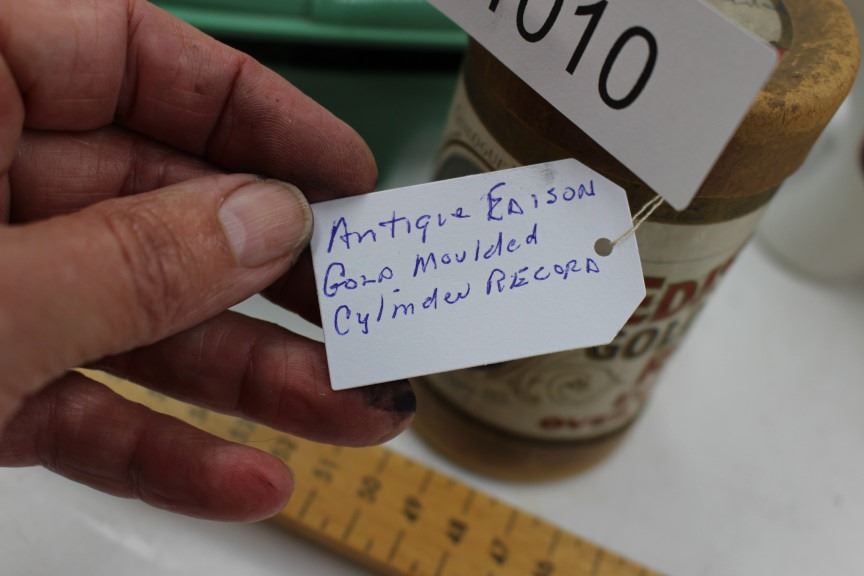 1010
Antique EDISON
GOLD Moulded
Cylinder RECORD
EDI
GOL
51
50
49
48
47